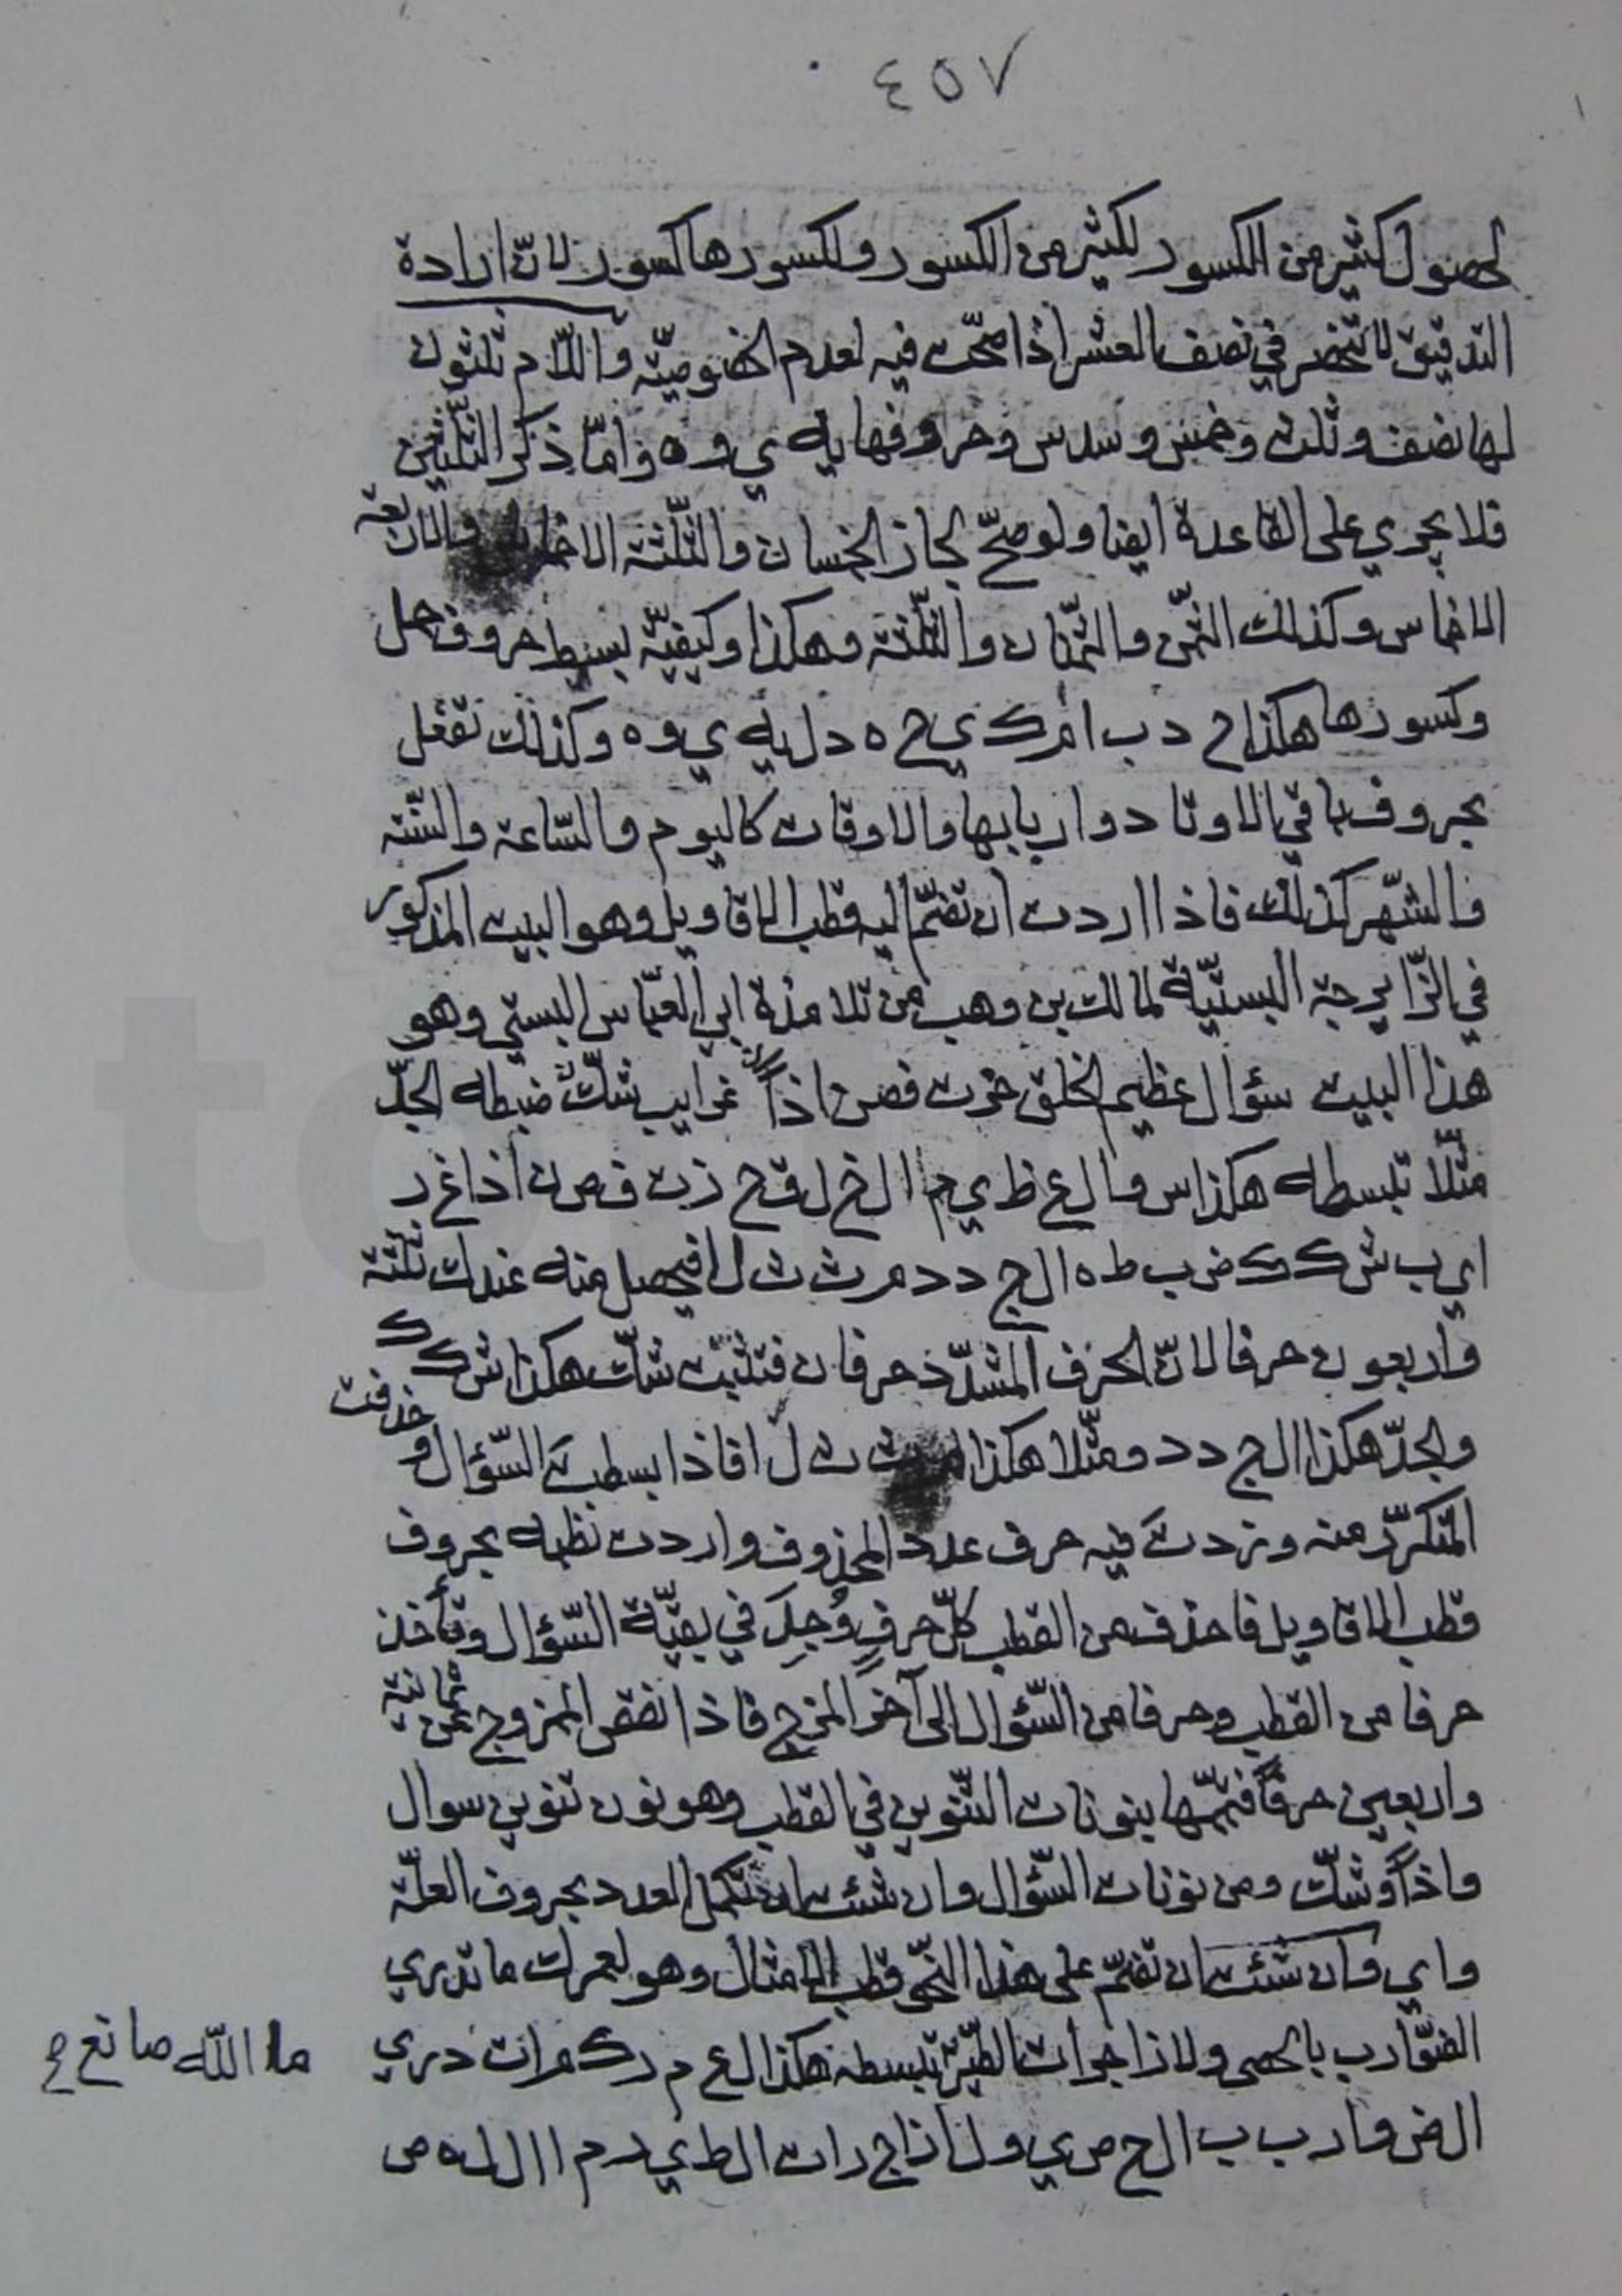 ٤٥٧
لحصول كثير من الكسور لكثير من الكسور ولكسورها كسور لانّ ارادة
التدقيق لا تنحصر في نصف العشر اذا صحّت فيه لعدم الخصوصيّة واللّام ثلثون
لها نصف وثلث وخمس وسدس وحروفها يه ي و ه وامّا ذكر الثلثين
فلا يجري على القاعدة ايضا ولو صحّ لجاز الخمسان والثّلثة الاخماس والاربعة
الاخماس وكذلك الثّمن والثّمنان والثّلثة وهكذا وكيفيّة بسيط حروف حمل
وكسورها هكذا ح د ب ا م ك ي ح ه د ل يه ي و ه وكذلك تفعل
بحروف باقي الاوتاد واربابها والاوقات كاليوم والسّاعة والسّنة
والشّهر كذلك فاذا اردت ان تضمّ اليه قطب الاقاويل وهو البيت المذكور
في الزّايرجة السبتيّة لمالك بن وهب من تلامذة ابي العبّاس السبتي وهو
هذا البيت سؤال عظيم الخلق حزت فصن اذاً غرايب شكّ ضبطه الجدّ
مثّلا تبسطه هكذا س و ا ل ع ظ ي م ا ل خ ل ق ح ز ت ف ص ن ا ذ ا غ ر
ا ي ب ش ك ك ض ب ط ه ا ل ج د د م ث ث ل ا فيحصل منه عندك ثلثة
واربعون حرفا لانّ الحرف المشدّد حرفان فتثبت شكّ هكذا ش ك ك
والجدّ هكذا ا ل ج د د ومثّلا هكذا م ث ث ل ا فاذا بسطت السّؤال وحذفت
المتكرّر منه وزدت فيه حرف عدد المحذوف واردت نظمه بحروف
قطب الاقاويل فاحذف من القطب كلّ حرفٍ وُجِدَ في بقيّة السّؤال وتأخذ
حرفا من القطب وحرفا من السّؤال الى آخر المزج فاذا نقص الممزوج عن ثمانية
واربعين حرفاً فتمّمها بنونات التّنوين في القطب وهو نون تنوين سوال
واذاً وشكّ ومن نونات السّؤال وان شئت ان تكمل العدد بحروف العلّة
واي وان شئت ان تضمّ على هذا النّحو قطب الامثال وهو لعمرك ما تدري
الضّوارب بالحصى ولا زاجرات الطّير تبسطه هكذا ل ع م ر ك م ا ت د ر ي
ما اللّه صانع ح
ا ل ض و ا ر ب ب ا ل ح ص ي و ل ا ز ا ج ر ا ت ا ل ط ي ر م ا ا ل ل ه ص